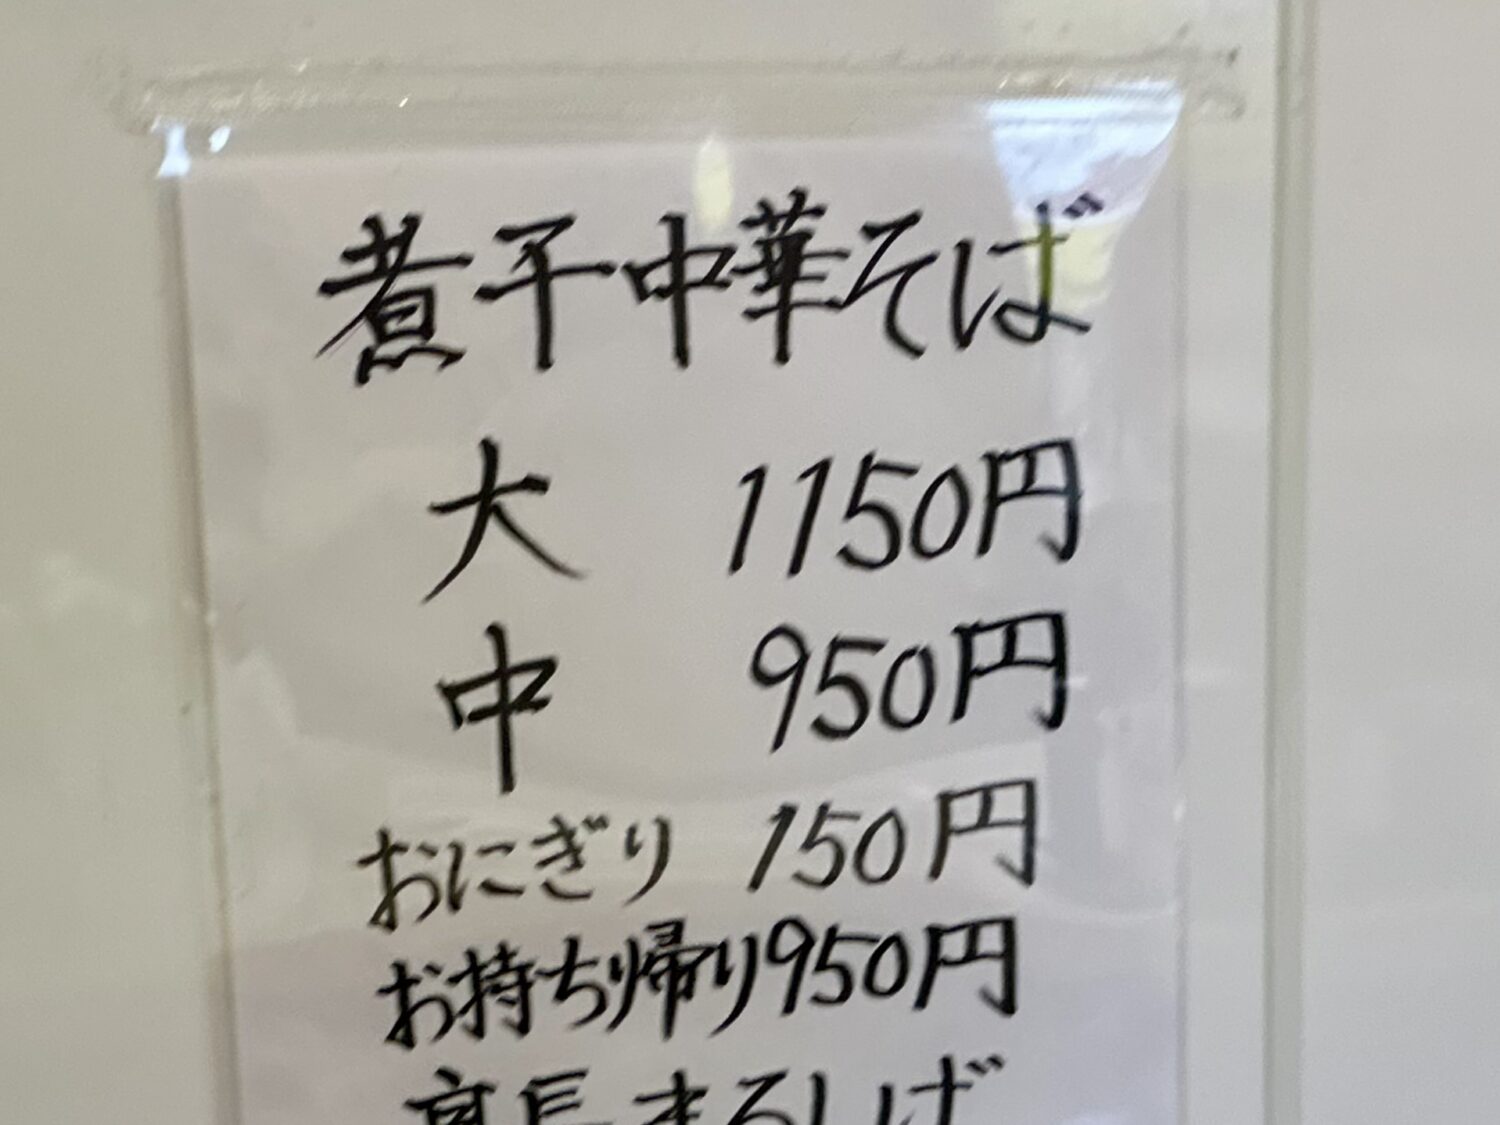 煮干中華そば
大 1150円
中 950円
おにぎり 150円
お持ち帰り950円